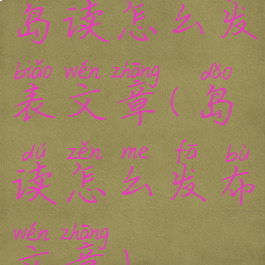 岛读怎么发
biǎo wén zhāng dǎo
表文章(岛
dú zěn me fā bù
读怎么发布
wén zhāng
文章)